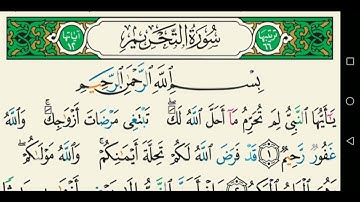 ترتيبها ٦٦ سُورَةُ التَّحْرِيمِ آياتها ١٢
بِسْمِ ٱللَّهِ ٱلرَّحْمَٰنِ ٱلرَّحِيمِ
يَٰٓأَيُّهَا ٱلنَّبِىُّ لِمَ تُحَرِّمُ مَآ أَحَلَّ ٱللَّهُ لَكَ ۖ تَبْتَغِى مَرْضَاتَ أَزْوَٰجِكَ ۚ وَٱللَّهُ
غَفُورٌ رَّحِيمٌ ١ قَدْ فَرَضَ ٱللَّهُ لَكُمْ تَحِلَّةَ أَيْمَٰنِكُمْ ۚ وَٱللَّهُ مَوْلَىٰكُمْ ۖ